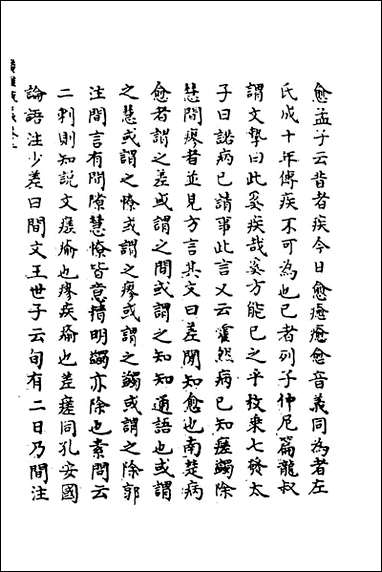 愈孟子云昔者疾今日愈癒瘉愈音義同為者左
氏成十年傳疾不可為也已者列子仲尼篇龍叔
謂文摯曰此奚疾哉奚方能已之乎枚乘七發太
子曰諾病已請事此言又云霍然病已知瘥蠲除
慧間瘳者並見方言其文曰差間知愈也南楚病
愈者謂之差或謂之間或謂之知知通語也或謂
之慧或謂之憭或謂之瘳或謂之蠲或謂之除郭
注間言有間隙慧憭皆意精明蠲亦除也素問云
二刺則知說文瘥瘉也瘳疾瘉也差瘥同孔安國
論語注少差曰間文王世子云旬有二日乃間注